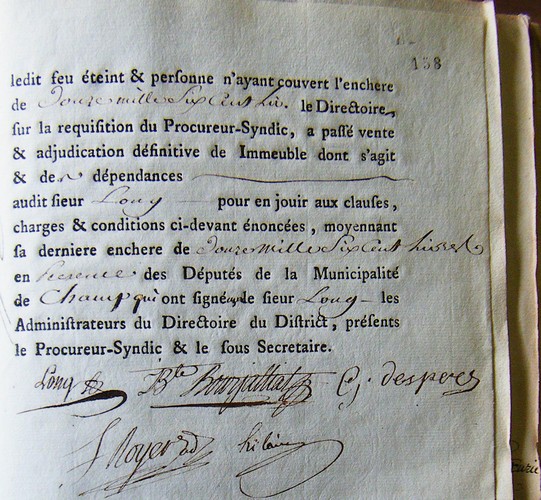 138
ledit feu éteint & perſonne n'ayant couvert l'enchere
de Douze mille Six Cent liv. le Directoire,
ſur la requiſition du Procureur-Syndic, a paſſé vente
& adjudication définitive de Immeuble dont s'agit
& de dépendances
audit ſieur Long pour en jouir aux clauſes,
charges & conditions ci-devant énoncées, moyennant
ſa derniere enchere de Douze Mille Six Cent livres
en Présence des Députés de la Municipalité
de Champ qui ont ſigné avec le ſieur Long les
Adminiſtrateurs du Directoire du Diſtrict, préſents
le Procureur-Syndic & le ſous Secretaire.
Long
Royer hilaire